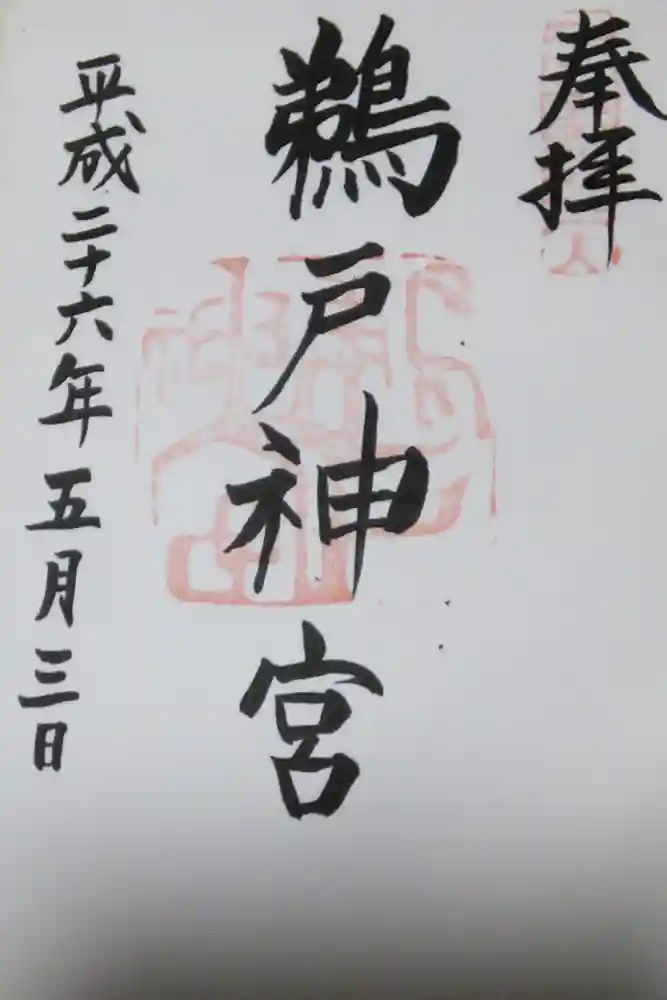 奉拝
鵜戸神宮
平成二十六年五月三日